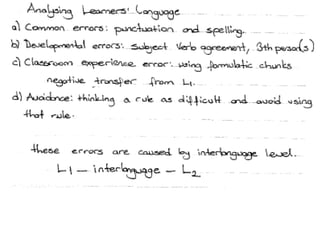 Analysing Learners' Language
a) Common errors: punctuation and spelling.
b) Developmental errors: subject Verb agreement, 3th person(s)
c) Classroom experience error: using formulatic chunks
negative transfer from L1.
d) Avoidance: thinking a rule as difficult and avoid using
that rule.
these errors are caused by interlanguage level.
L1 – interlanguage – L2